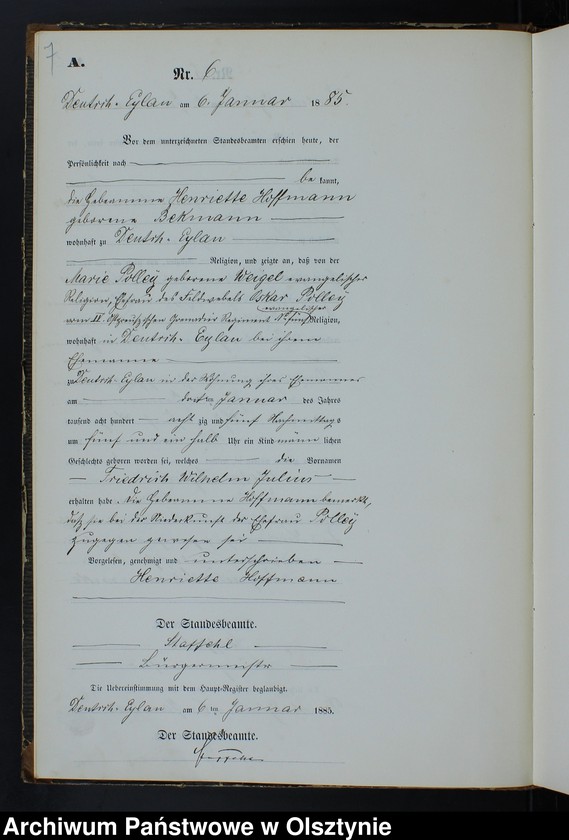 7
A.
Nr. 6
Deutsch-Eylau am 6. Januar 1885.
Vor dem unterzeichneten Standesbeamten erschien heute, der
Persönlichkeit nach
be kannt,
die Hebeamme Henriette Hoffmann
geborene Bekmann
wohnhaft zu Deutsch-Eylau
Religion, und zeigte an, daß von der
Marie Polley geborene Weigel evangelischer
Religion, Ehefrau des Feldwebels Oskar Polley
evangelischer
vom II. Ostpreußischen Grenadier Regiment No fünf Religion,
wohnhaft in Deutsch-Eylau bei ihrem
Ehemanne
zu Deutsch-Eylau in der Wohnung ihres Ehemannes
am dritten Januar des Jahres
tausend acht hundert acht zig und fünf Nachmittags
um fünf und ein halb Uhr ein Kind männ lichen
Geschlechts geboren worden sei, welches die Vornamen
Friedrich Wilhelm Julius
erhalten habe. Die Hebeamme Hoffmann bemerkte,
daß sie bei der Niederkunft der Ehefrau Polley
zugegen gewesen sei
Vorgelesen, genehmigt und unterschrieben
Henriette Hoffmann
Der Standesbeamte.
Staffehl
Bürgermeister
Die Uebereinstimmung mit dem Haupt-Register beglaubigt.
Deutsch-Eylau am 6ten Januar 1885.
Der Standesbeamte.
Archiwum Państwowe w Olsztynie